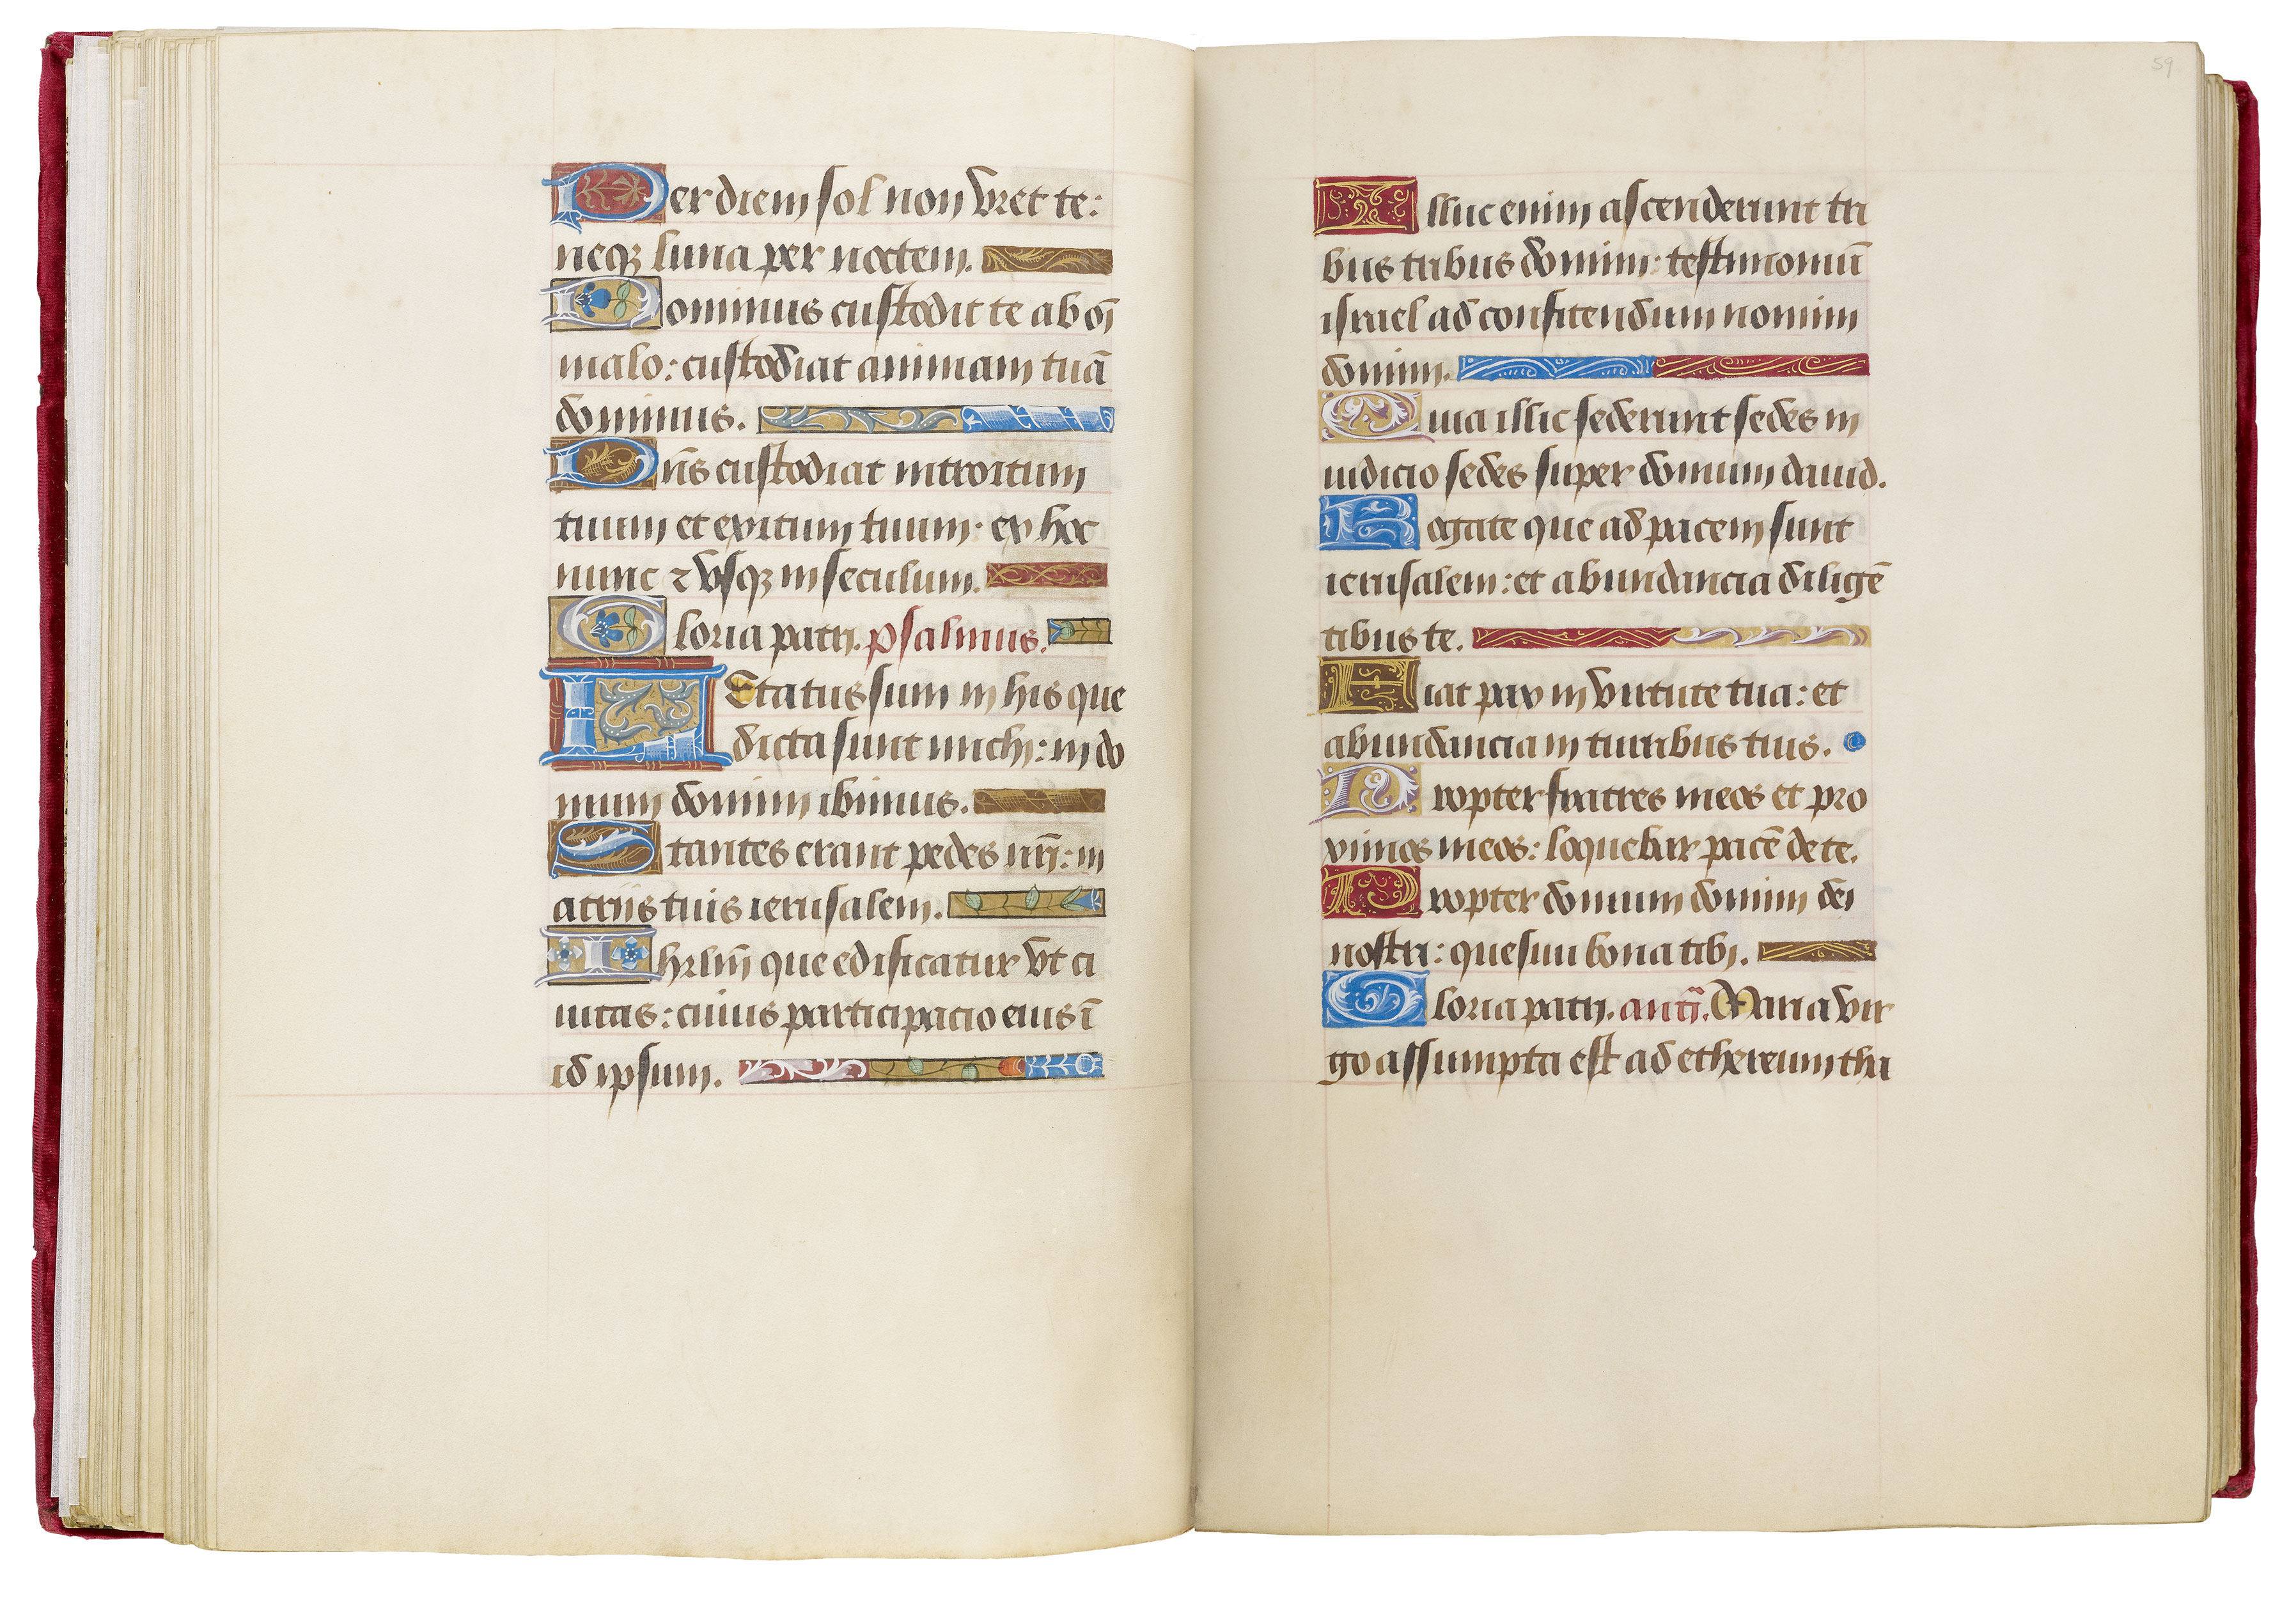 Per diem sol non vret te:
neqꝫ luna per noctem.
Dominus custodit te ab oī
malo: custodiat animam tuā
dominus.
Dn̄s custodiat introitum
tuum et exitum tuum: ex hoc
nunc ⁊ vsqꝫ in seculum.
Gloria patri. psalmus.
LEtatus sum in his que
dicta sunt michi: in do
mum domini ibimus.
Stantes erant pedes nr̄i: in
atriis tuis ierusalem.
Ihrlm̄ que edificatur vt ci
uitas: cuius participacio eius ī
id ipsum.
59
Illuc enim ascenderunt tri
bus tribus domini: testimoniū
israel ad confitendum nomini
domini.
Quia illic sederunt sedes in
iudicio sedes super domum dauid.
Rogate que ad pacem sunt
ierusalem: et abundancia diligē
tibus te.
Fiat pax in virtute tua: et
abundancia in turribus tuis.
Propter fratres meos et pro
ximos meos: loquebar pacē de te.
Propter domum domini dei
nostri: quesiui bona tibi.
Gloria patri. antī. Maria vir
go assumpta est ad ethereum tha